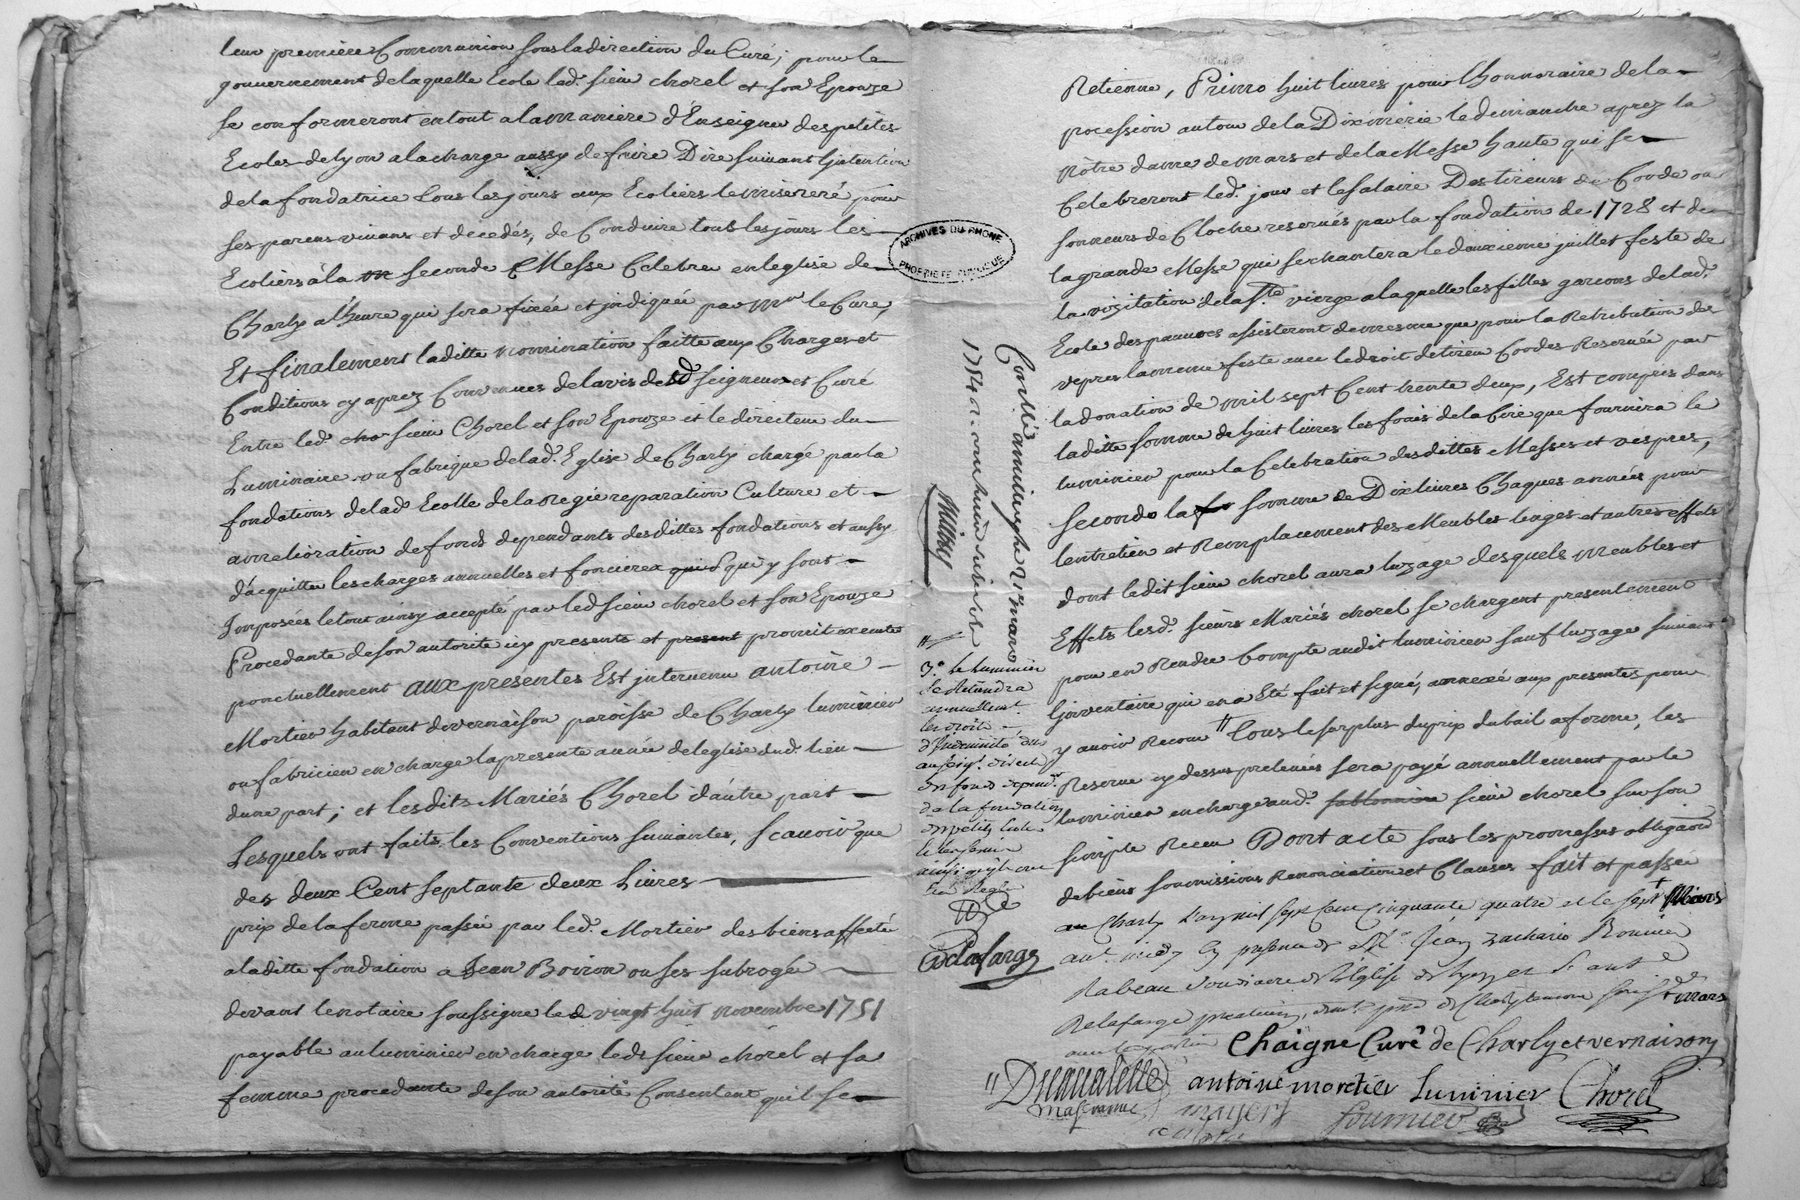 leur premiere Communion sous la direction du Curé; pour le
gouvernement de laquelle Ecole led. sieur chorel et son Epouze
se conformeront en tout a la maniere d'Enseigner des petites
Ecoles de lyon a la charge aussy de faire Dire suivant l'intention
de la fondatrice tous les jours aux Ecoliers le miséreré pour
ses parens vivans et decedés, de Conduire tous les jours les
Ecoliers à la seconde Messe Celebrée en leglise de
Charly a l'heure qui sera fixée et indiquée par Mr. le Curé,
Et finalement laditte nomination faitte aux Charges et
Conditions cy aprez Convenues de lavis desd. seigneur et Curé
Entre led. sieur Chorel et son Epouze et le directeur du
Luminaire ou fabrique delad. Eglise de Charly chargé par la
fondations delad. Ecolle de la Regie reparation Culture et
amelioration de fonds dependants desdittes fondations et aussy
d'acquitter les charges annuelles et foncieres qui y sont
Imposées le tout ainsy accepté par led sieur chorel et son Epouze
Procedante de son autorité icy presents et present promet executer
ponctuellement aux presentes Est intervenu antoine
Mortier habitant de vernaison paroisse de Charly luminier
ou fabricien en charge la presente année de leglise dud. lieu
dune part; et lesdits Mariés Chorel d'autre part
Lesquels ont faits les Conventions suivantes, scavoir que
des deux Cent septante deux Livres
prix de la ferme passée par led. Mortier des biens affecté
a laditte fondation a Jean Boiron ou ses subrogé
devant le notaire soussigne le vingt huit novembre 1751
payable au luminier en charge led. sieur chorel et sa
femme procedante de son autorité Consentent qu'il se
ARCHIVES DU RHONE
PROPRIETE PUBLIQUE
Controllé
1754
3.° le luminier
se Retiendra
annuellement
les droits
d'Indemnité
de la fondation
Delafarge
Retienne, Primo huit livres pour l'honnoraire de la
procession autour de la Dixmerie le dimanche aprez la
Nôtre dame de mars et de la Messe haute qui se
Celebreront led. jour et le salaire Des tireurs de Corde ou
sonneurs de Cloche reservés par la fondation de 1728 et de
la grande Messe qui se chantera le deuxieme juillet feste de
la visitation de la Ste vierge a laquelle les filles garcons delad.
Ecole des pauvres assisteront de mesme que pour la Retribution des
vepres la meme feste avec le droit de tireur Cordes Reservée par
la donation de mil sept Cent trente deux, Est compris dans
laditte somme de huit livres les frais de la Cire que fournira le
luminier pour la Celebration desdittes Messes et vespres,
Secondo la somme de Dix livres Chaques années pour
lentretien et Remplacement des Meubles linges et autres effets
dont ledit sieur chorel aura luzage desquels meubles et
Effets lesd. sieurs Mariés chorel se chargent presentement
pour en Rendre Compte audit luminier sauf luzage suivant
linventaire qui en a Eté fait et signé, annexé aux presentes pour
y avoir Recours tous le surplus du prix du bail a ferme, les
Reserve cy dessus prelevés sera payé annuellement par le
luminier en charge aud. sieur chorel sur son
simple Receu Dont acte sous les promesses obligaon
de biens soumissions Renonciation et Clauses fait et passée
au Charly l'an mil sept cent cinquante quatre et le sept Mars
Jean Zacharie
Rabeau
Delafarge
mars
Chaigne Curé de Charly et vernaison
antoine mortier Luminier Chorel
mayer
fournier